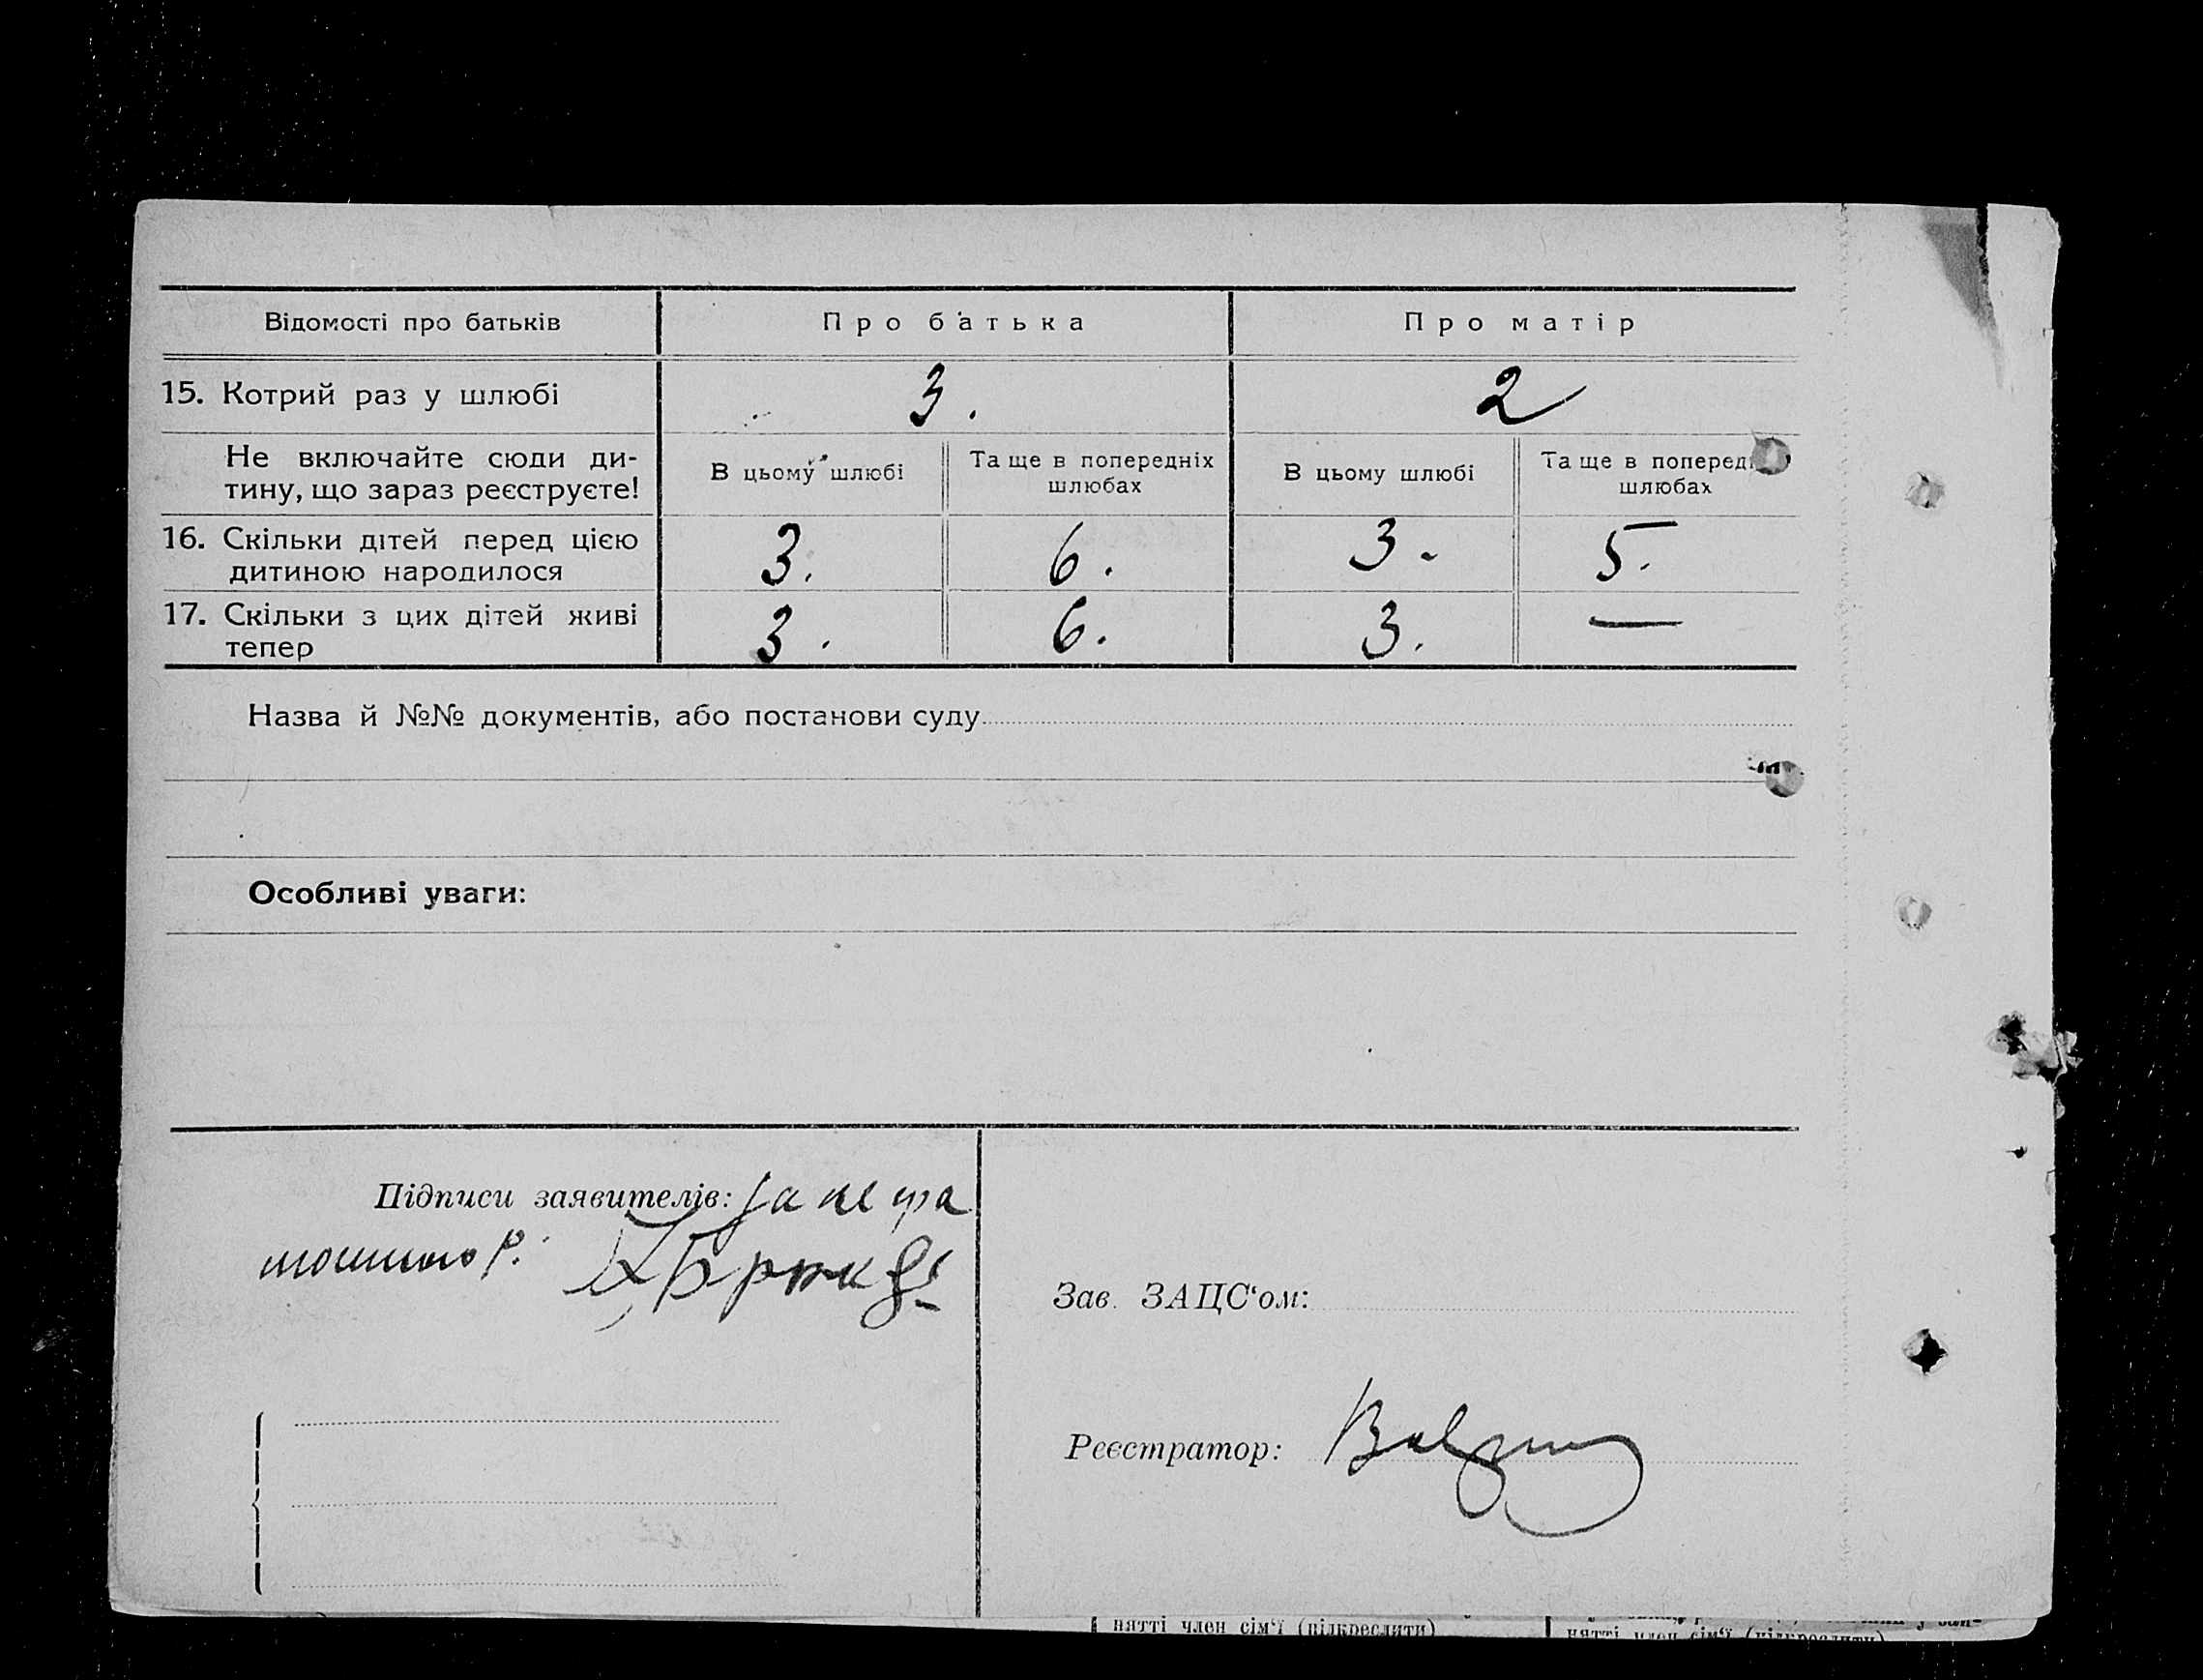 Відомості про батьків Про батька Про матір
15. Котрий раз у шлюбі 3. 2
Не включайте сюди ди-
тину, що зараз реєструєте!
В цьому шлюбі
Та ще в попередніх
шлюбах
В цьому шлюбі
Та ще в поперед
шлюбах
16. Скільки дітей перед цією
дитиною народилося
3. 6. 3. 5.
17. Скільки з цих дітей живі
тепер
3. 6. 3. —
Назва й №№ документів, або постанови суду
Особливі уваги:
Підписи заявителів: За не гра
мотного р.
Зав. ЗАЦС'ом:
Реєстратор:
нятті член сім'ї (підкреслити)
нятті член сім'ї (підкреслити)